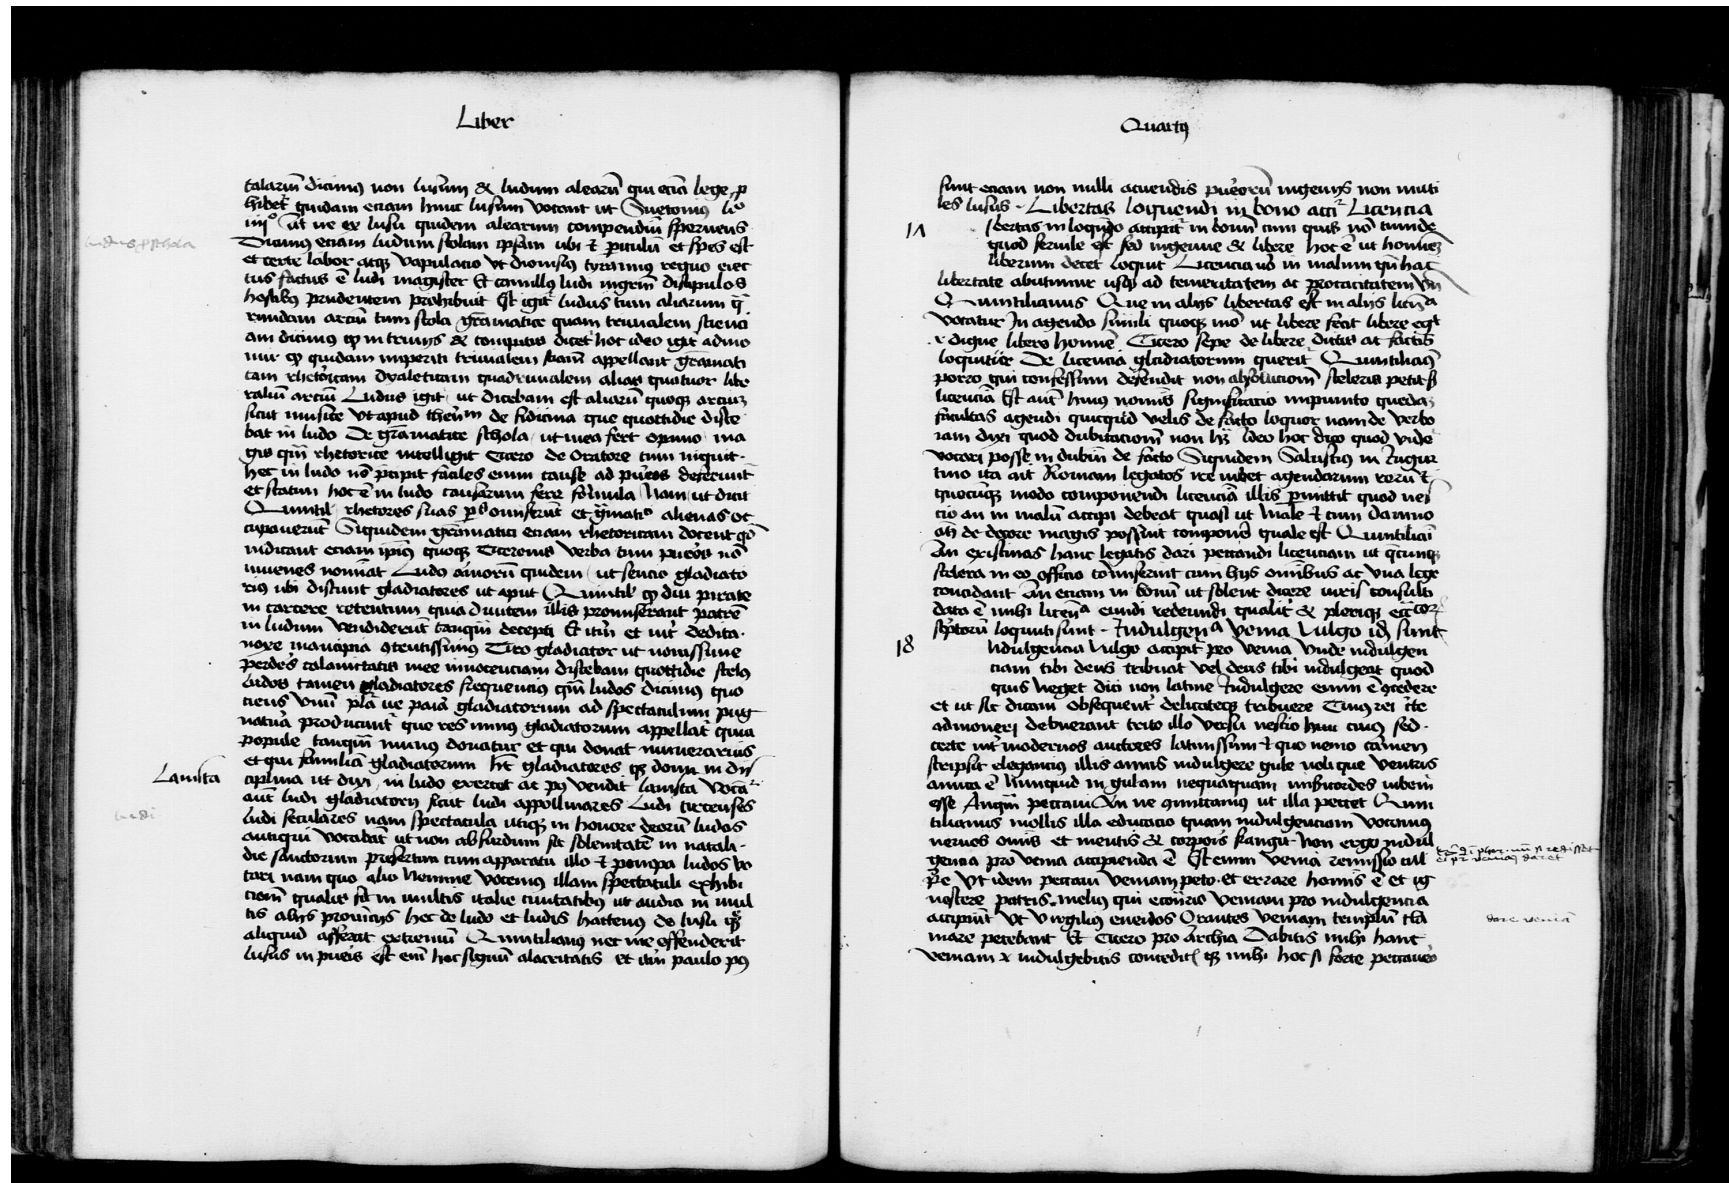 Liber
talariu᷑ dicimus non lusum & ludum alearu᷑ qui eciā lege p̱
hibet᷑ quidam eciam hunc lusum vocant ut Suetonius li°
iiij° Ut ne ex lusu quidem alearum compendiū sperneus
Dicimus eciam ludum scolam ipsam ubi & periculū et spes est
et certe labor atqꝫ vapulacio vt dionisius tyrannus regno eiec
tus factus ē ludi magister Et camillus ludi mgrm̄ discipulos
hostibus prudentem prohibuit Est igit᷑ ludus tum aliarum q̄
rundam arciū tum scola gramatice quam trivialem scienci
am dicimus
nur qꝫ quidam imperiti trivialem scam̄ appellant gramati
cam rhetoricam dyaleticam quadrivialem alias quatuor libe
ralium arciū Ludus igit᷑ ut dicebam est aliarū quoqꝫ arciuꝫ
sicut musice vt apud
bat in ludo De gramatice schola ut mea fert opinio ma
gis qm̄ rhetorice intelligit Cicero de Oratore cum inquit
hec in ludo nō p̄cipit faciles enim cause ad pueros deferunt᷑
et statim hoc ē in ludo causarum fere formula Nam ut dicit
Quintil᷑ rhetores suas omiserunt et alienas oc
cupaverunt Siquidem gramatici eciam rhetoricam docent
indicant eciam ipius quoqꝫ Ciceronis verba cum pueros nō
iuvenes nominat Ludo quidem ut sencio gladiato
rius ubi discunt gladiatores ut aput Quintil᷑ qꝫ diu pirate
in carcere retentum quia divitem illis promiserant patrē
in ludum vendiderūt tanqm̄ decepti Et
perdes calamitatis mee innocenciam discebam quottidie scelus
ludos tamen gladiatores frequencius qm̄ ludos dicimus quo
ciens gladiatorum ad spectaculum pug
natura producunt᷑ que res munus gladiatorum appellat᷑ quia
popule tanqm̄ munus donatur et qui donat munerarius
et qui familiā gladiatorum h̄t gladiatores qꝫ domi in dis
ciplina ut dixi in ludo exercet ac vendit lanista voca
Lanista
aut ludi gladiatorū sicut ludi appollinares Ludi circenses
ludi seculares nam spectacula utiqꝫ in honore deorū ludos
ludi
antiqui vocabāt ut non absurdum sit solemnitatē in natali
die sanctorum presertim cum apparatu illo & pompa ludos vo
cari nam quo alio Nemine vocemus illam spectaculi exhibi
cionē qualis fit in multis italie civitatibus ut audio in mul
tis aliis provincijs hec de ludo et ludis hactenus De lusu
aliquid afferat extremū Quintilianus nec me offenderit
lusus in pueris est eni hoc signū alacritatis et paulo
Quartus
sunt eciam non nulli acuendis puerorū ingenijs non inuti
les lusus Libertas loquendi in bono acci᷑ Licencia
17
Libertas in loquendo accipit᷑ in bonū cum quis nō timide
quod servile est sed ingenue & libere hoc ē ut homineꝫ
liberum decet loquit᷑ Licencia vō in malum qn̄ hac
libertate abutimur usqꝫ ad temeritatem ac procacitatem Vn̄
Quintilianus Que in alijs libertas est in alijs licnᵃ
vocatur In agendo simili quoqꝫ mō ut libere fecit libere egit
& digne libero homine Cicero sepe de libere dictis ac factis
loquitur De licencia gladiatorum querit᷑ Quintilian᷑
porro qui confessum defendit non absolucionē sceleris petit s̄
licenciā Est autē huius nominis significacio impunito quedaꝫ
facultas agendi quicquid velis de facto loquor nam de verbo
iam dixi quod dubitacionē non h̄ꝫ Ideo hoc dico quod vide
vocari posse in dubiū de facto Siquidem Salustius in Iugur
tino ita ait Romam legatos ire iubet agendarum rerū &
quocūqꝫ modo componendi licenciā illis p̱mittit quod nes
cio an in malū accipi debeat quasi ut male & cum damno
an de decore magis possint componē quale est Quintilian᷑
An existimas hanc legatis dari peccandi licenciam ut
scelera in eo officio cōmiserint cum hijs omībus ac una lege
concidant An eciam in bonū ut solent dicere iuris consulti
data ē mihi licenᵃ eundi redeundi qualit᷑ & pleriqꝫ
sc̄ptorū loquuti sunt Indulgenᵃ Venia Vulgo idꝫ sunt
18
Indulgencia Vulgo accipit᷑ pro venia Unde indulgen
ciam tibi deus tribuat vel deus tibi indulgeat quod
quis neget dici non latine Indulgere enim ē ꝯcedere
et ut sic dicam obsequent᷑ delicateqꝫ tribuere Cuius rei
admoneri debuerant trito illo versu nescio huius cuius sed
certe int᷑ modernos auctores latinissim & quo nemo carmen
scripsit elegancius illis annis indulgere gule noli que ventris
amica ē Nunquid in gulam nequaquam misericordes iubem̄
esse An qm̄ peccavi An ne ꝯmittamus ut illa peccet Quin
tilianus mollis illa educacio quam indulgenciam vocamus
nervos omīs et mentis & corporis frangit Non ergo indul
gencia pro venia accipienda ē Est enim venia remissio cul
pe Ut idem peccavi veniam peto et errare homīs ē et ig
noscere patris melius qui econtrario veniam pro indulgencia
accipiunt Ut Virgilius eneidos Orantes veniam templū cla
dare veniā
more petebant Et Cicero pro Archia Dabitis mihi hanc
veniam & indulgebitis concedit᷑ qꝫ mihi hoc si forte peccavero